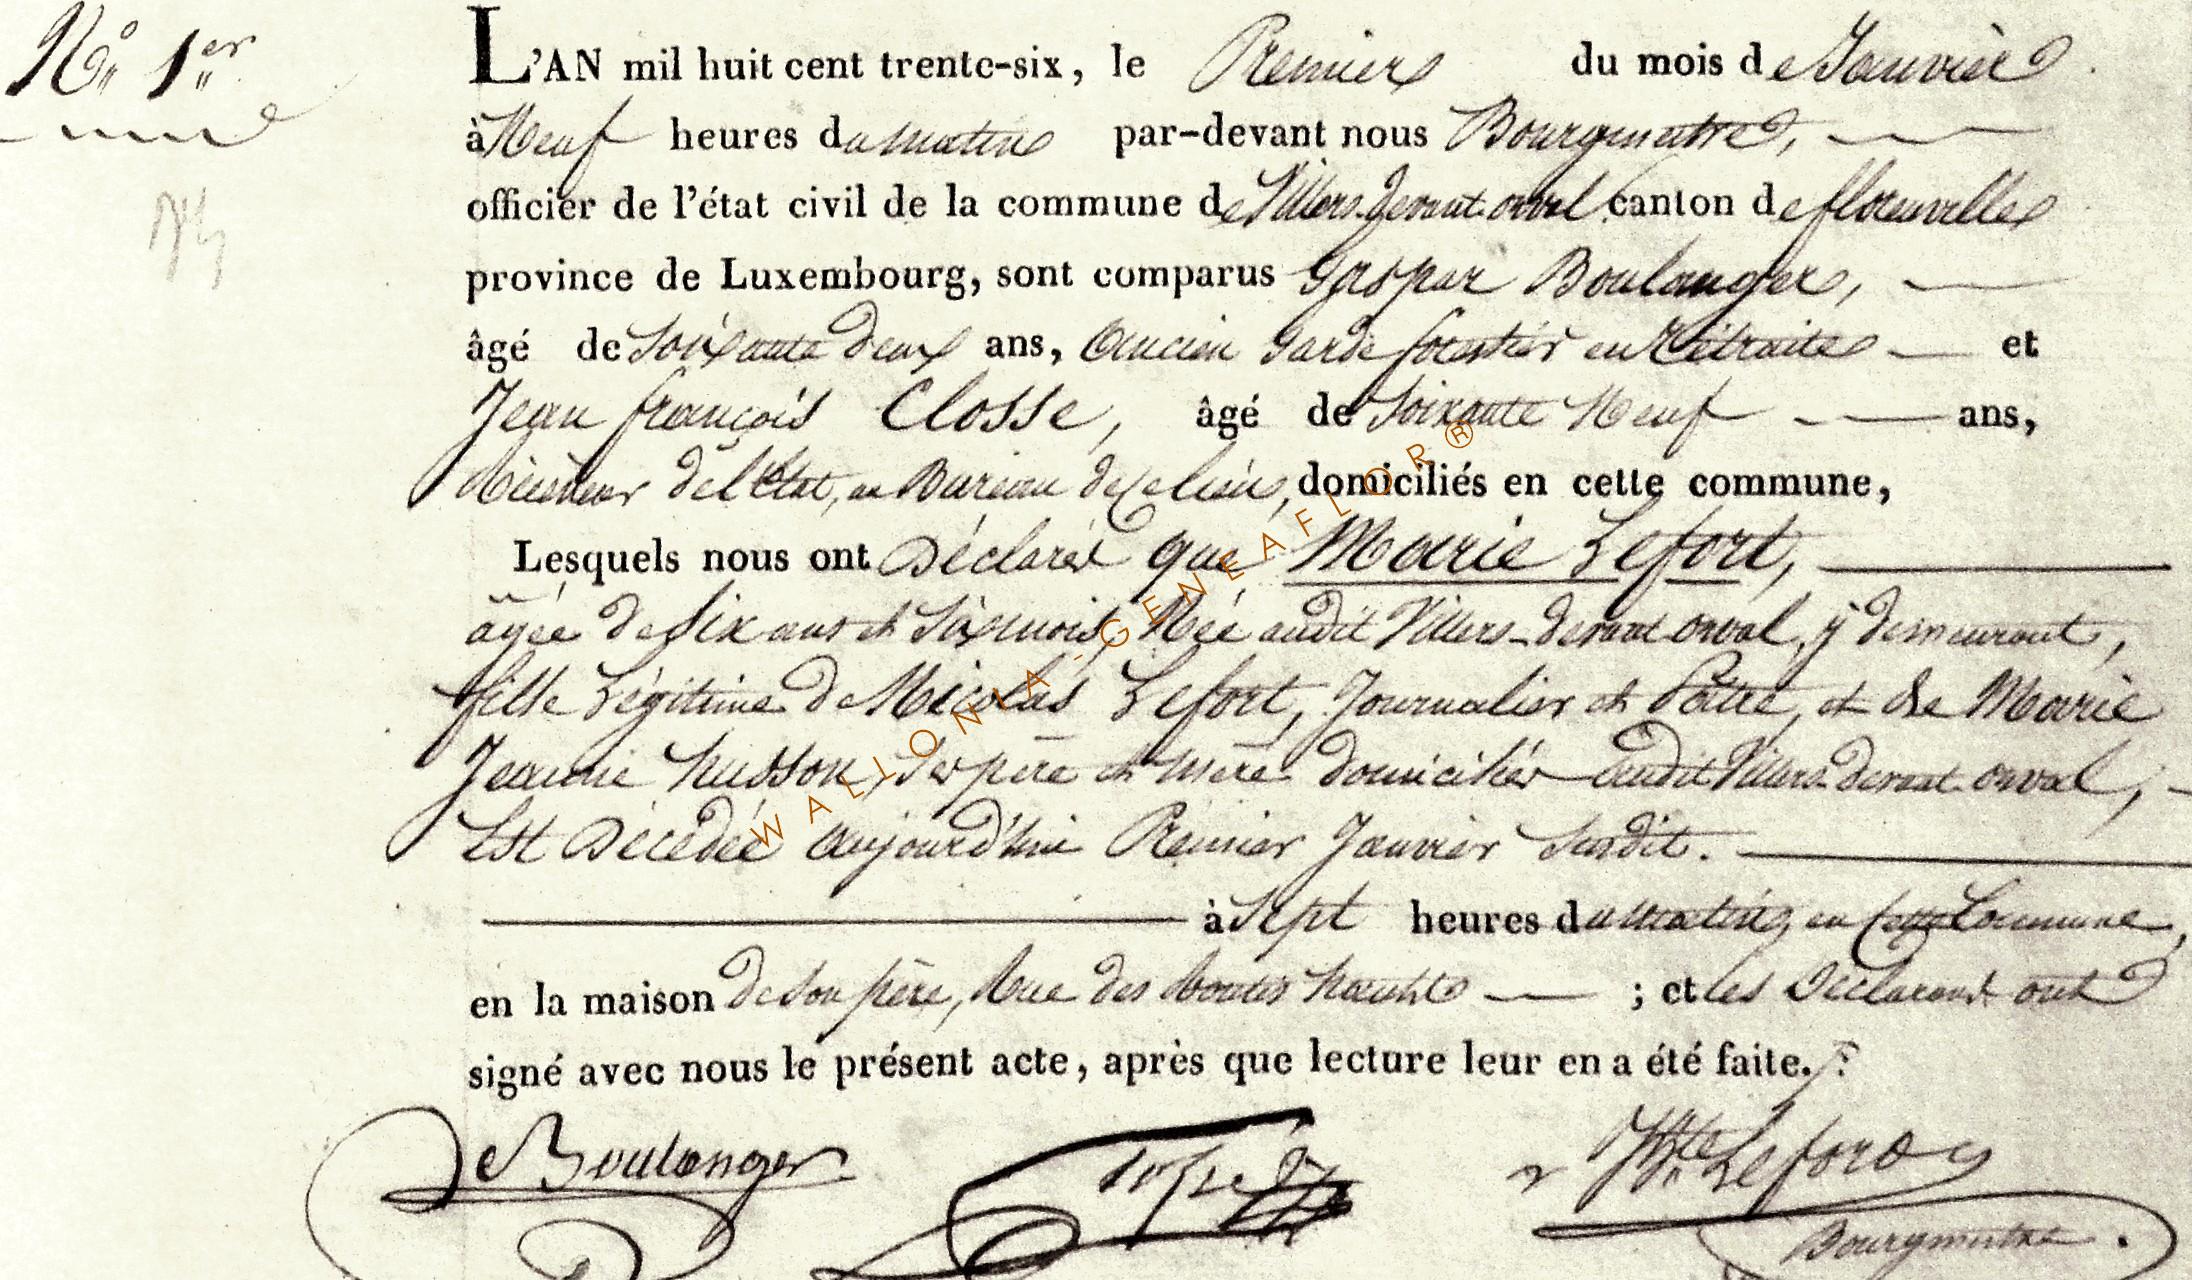 No 1er
L'AN mil huit cent trente-six, le Premier du mois de Janvier
à Neuf heures du matin par-devant nous Bourgmestre,
officier de l'état civil de la commune de Villers-devant-orval canton de florenville
province de Luxembourg, sont comparus Gaspar Boulanger,
âgé de Soixante deux ans, ancien Garde forestier en Rétraite et
Jean françois Closse, âgé de Soixante Neuf ans,
de l'Etat, au Bureau de ce lieu, domiciliés en cette commune,
Lesquels nous ont Déclaré que Marie Lefort,
agée de Six ans et Six mois, Née audit Villers-devant orval, y demeurant,
fille Légitime de Nicolas Lefort, Journalier et Patre, et de Marie
Jeanne husson, Ses père et mère domiciliés audit Villers-devant-orval,
Est Décédée aujourd'hui Premier Janvier Susdit.
à Sept heures du matin, en cette Commune,
en la maison de Son père, Rue des ; et les Déclarant ont
signé avec nous le présent acte, après que lecture leur en a été faite.
Boulanger
Lefort
Bourgmestre.
WALLONIA-GENEAFLOR®